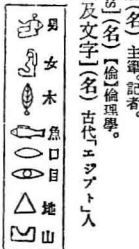 (名) 主筆。記者。
s](名)【倫】倫理學。
及文字](名) 古代「エジプト」人
男
女
木
魚
口
目
地
山